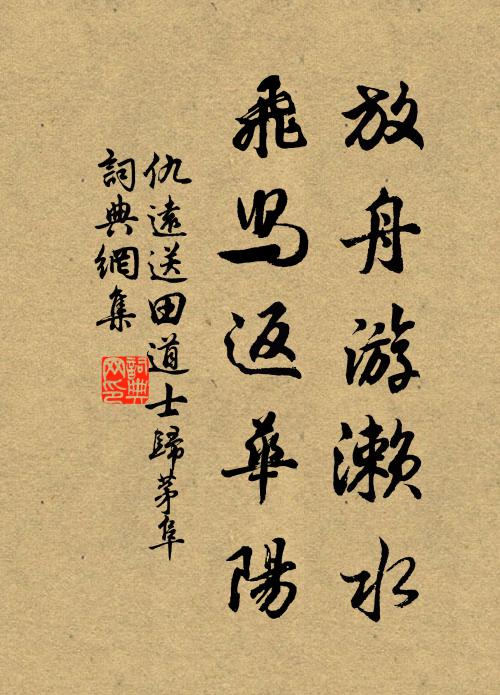 放舟游濑水
飛舄返華陽
仇遠送田道士歸茅阜
詞典網集
詞典網印